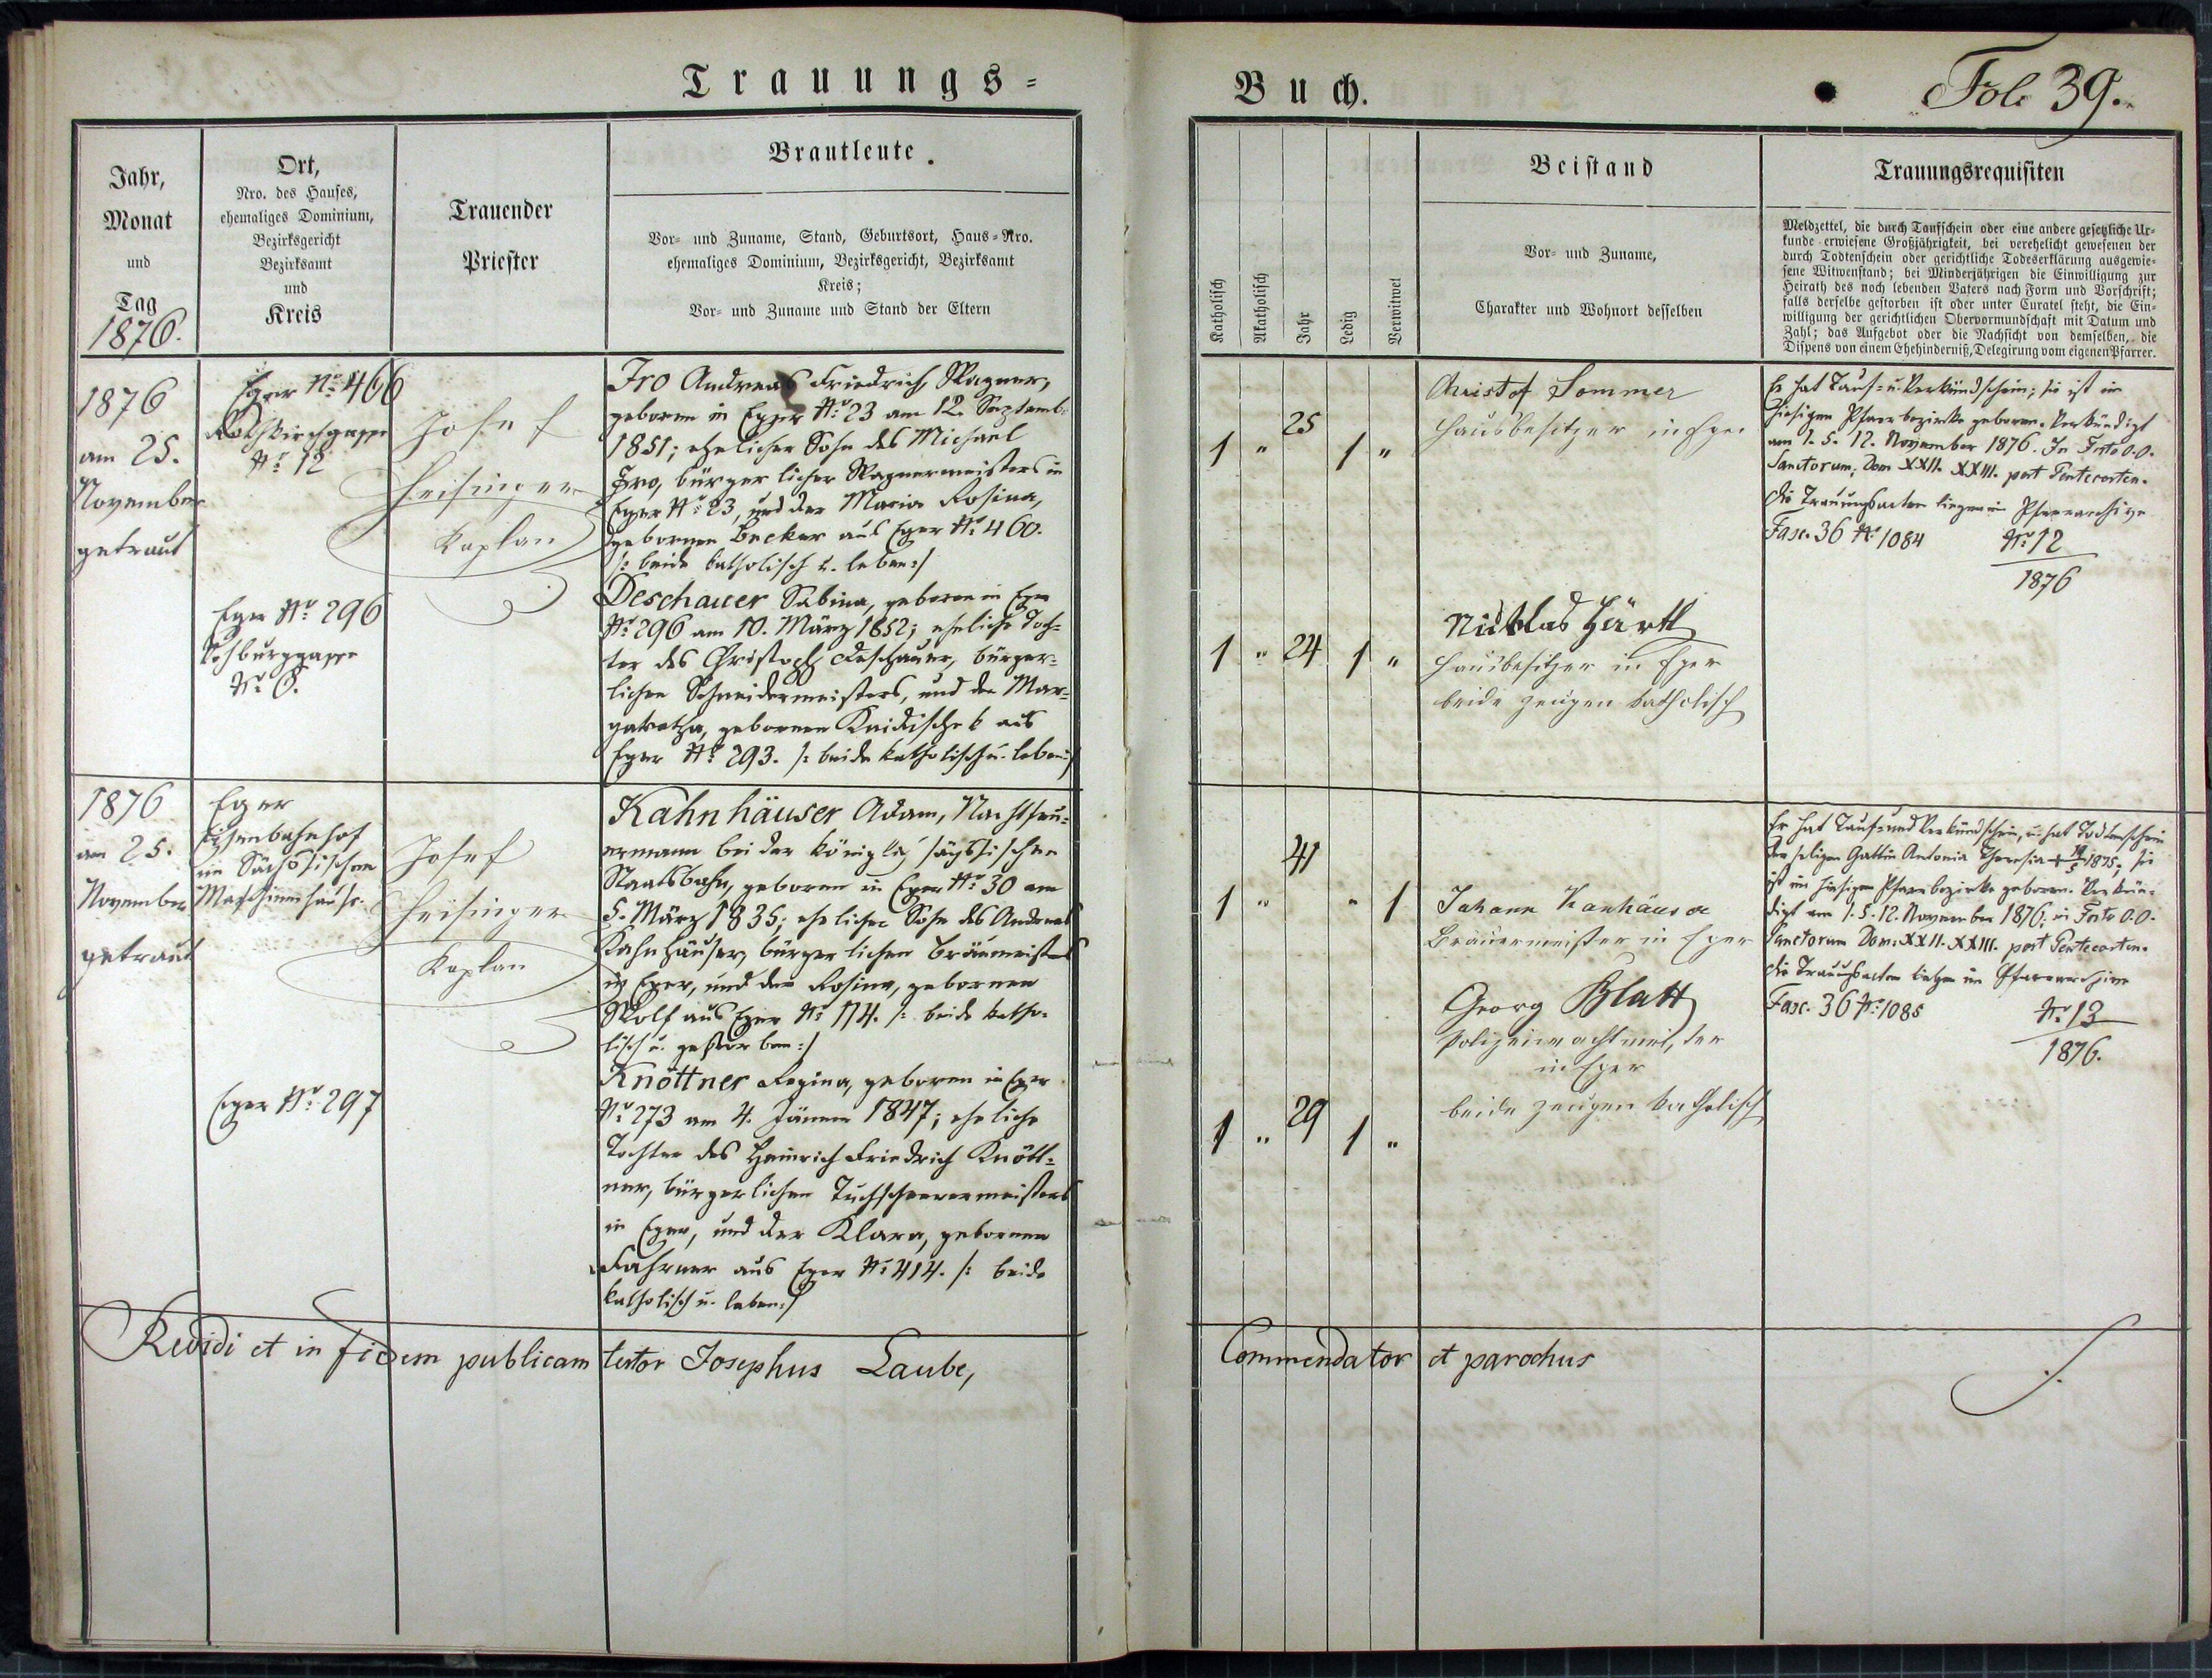 Trauungs-
Buch.
Fol. 39.
Jahr,
Monat
und
Tag
1876.
Ort,
Nro. des Hauses,
ehemaliges Dominium,
Bezirksgericht
Bezirksamt
und
Kreis
Trauender
Priester
Brautleute.
Vor- und Zuname, Stand, Geburtsort, Haus-Nro.
ehemaliges Dominium, Bezirksgericht, Bezirksamt
Kreis;
Vor- und Zuname und Stand der Eltern
Katholisch
Akatholisch
Jahr
Ledig
Verwitwet
Beistand
Vor- und Zuname,
Charakter und Wohnort desselben
Trauungsrequisiten
Meldzettel, die durch Taufschein oder eine andere gesetzliche Ur-
kunde erwiesene Großjährigkeit, bei verehelicht gewesenen der
durch Todtenschein oder gerichtliche Todeserklärung ausgewie-
sene Witwenstand; bei Minderjährigen die Einwilligung zur
Heirath des noch lebenden Vaters nach Form und Vorschrift;
falls derselbe gestorben ist oder unter Curatel steht, die Ein-
willigung der gerichtlichen Obervormundschaft mit Datum und
Zahl; das Aufgebot oder die Nachsicht von demselben, die
Dispens von einem Ehehinderniß, Delegirung vom eigenen Pfarrer.
1876
am 25.
November
getraut
Eger No 466
No 12
Josef
Heisinger
Kaplan
Iro Andreas Friedrich, Wagner,
geboren in Eger No 23 am 12. Septemb.
1851; ehelicher Sohn des Michael
Iro, bürgerlicher Wagnermeisters in
Eger No 23, und der Maria Rosina,
gebornen Becker aus Eger No 460.
/: beide katholisch u. leben :/
1 " 25 1 "
Christof Sommer
Hausbesitzer in Eger
Er hat Tauf- u. Verkündschein; sie ist im
hiesigen Pfarrbezirke geboren. Verkündigt
am 1. 5. 12. November 1876. In Festo O. O.
Sanctorum; Dom XXII. XXIII. post Pentecosten.
Die Trauungsacten liegen im Pfarrarchive
Fasc. 36 No 1084
No 12
1876
Eger No 296
No 6.
Deschauer Sabina, geboren in Eger
No 296 am 10. März 1852; eheliche Toch-
ter des Christoph Deschauer, bürger-
lichen Schneidermeisters, und der Mar-
garetha, gebornen aus
Eger No 293. /: beide katholisch u. leben :/
1 " 24 1 "
Nicklas Härtl
Hausbesitzer in Eger
beide Zeugen katholisch
1876
am 25.
November
getraut
Eger
Eisenbahnhof
im Sächsischen
Maschinenhause.
Josef
Heisinger
Kaplan
Kahnhäuser Adam, Nachtfeu-
ermann bei der königlich sächsischen
Staatsbahn, geboren in Eger No 30 am
5. März 1835; ehelicher Sohn des Andreas
Kahnhäuser, bürgerlichen Bräumeisters
in Eger, und der Rosina, gebornen
Wolf aus Eger No 174. /: beide katho-
lisch u. gestorben :/
1 " 41 " 1
Johann Kanhäuser
Bräuermeister in Eger
Georg Blatt
Polizeiwachtmeister
in Eger
beide Zeugen katholisch
Er hat Tauf- und Verkündschein, u. hat Todtenschein
der seligen Gattin Antonia Theresia + 1875; sie
ist im hiesigen Pfarrbezirke geboren. Verkün-
digt am 1. 5. 12. November 1876. in Festo O. O.
Sanctorum Dom: XXII. XXIII. post Pentecosten.
Die Trauungsacten liegen im Pfarrarchive
Fasc. 36 No 1085
No 13
1876.
Eger No 297
Knöttner Regina, geboren in Eger
No 273 am 4. Jänner 1847; eheliche
Tochter des Heinrich Friedrich Knött-
ner, bürgerlichen Tuchscheerermeisters
in Eger, und der Klara, gebornen
Fahrner aus Eger No 414. /: beide
katholisch u. leben :/
1 " 29 1 "
Revidi et in fidem publicam testor Josephus Laube,
Commendator et parochus